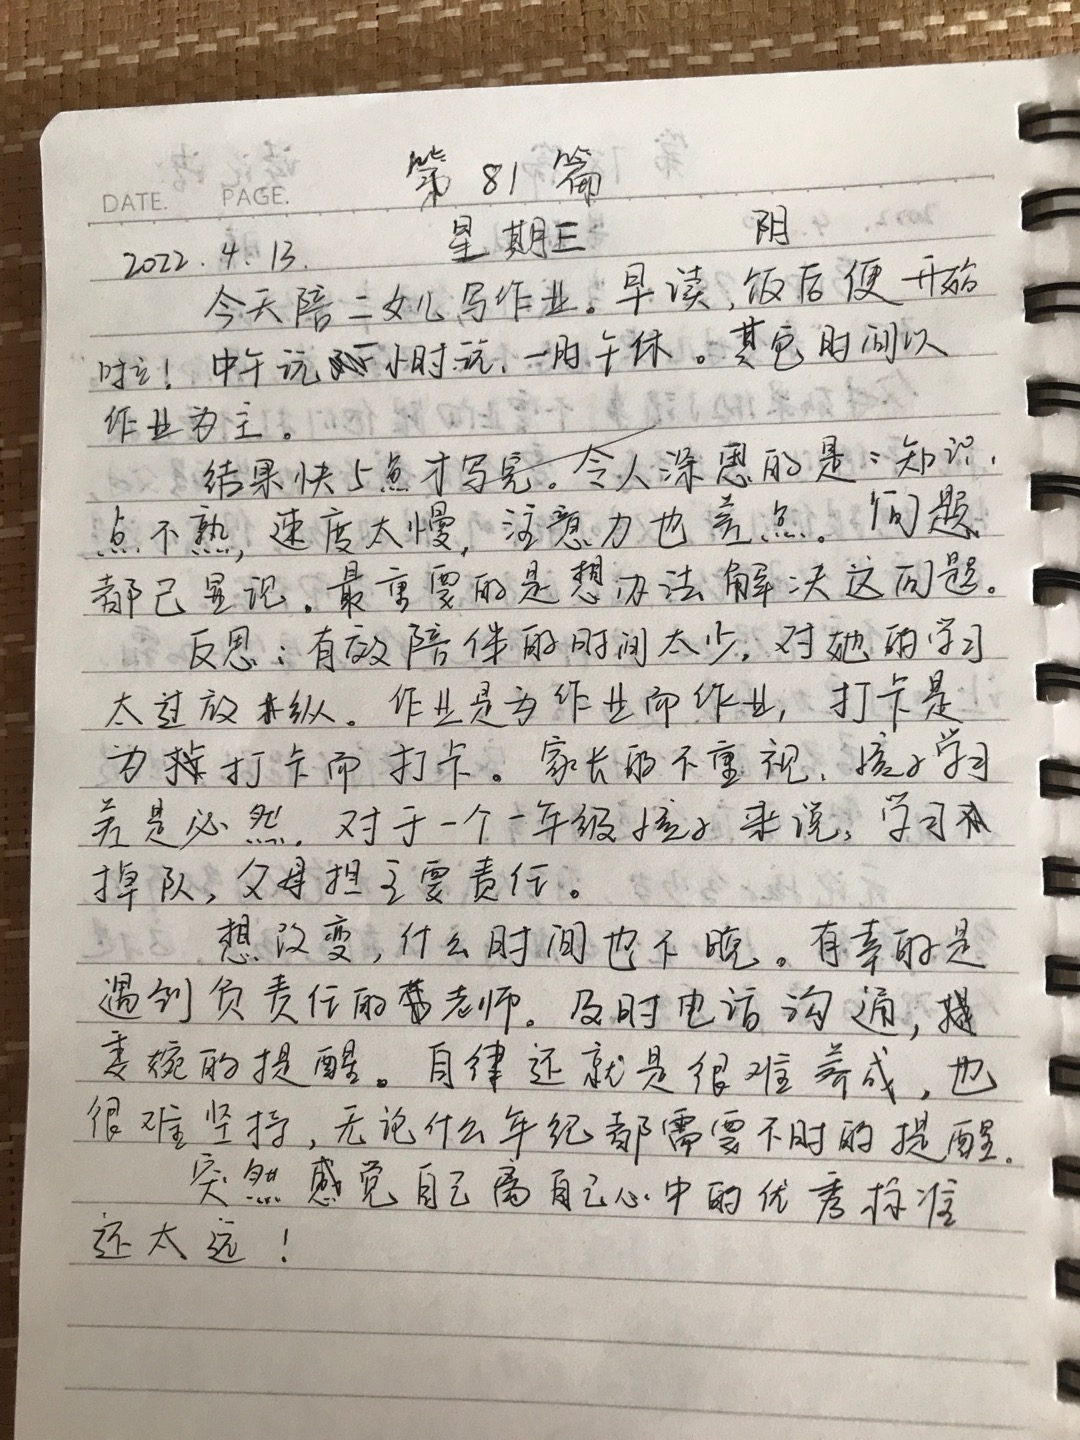 第81篇
DATE. PAGE.
2022.4.13. 星期三 阴
今天陪二女儿写作业。早读,饭后便开始
啦! 中午玩小时玩,一时午休。其它时间以
作业为主。
结果快5点才写完。令人深思的是:知识
点不熟,速度太慢,注意力也差点。问题
都已显现。最重要的是想办法解决这问题。
反思:有效陪伴的时间太少,对她的学习
太过放纵。作业是为作业而作业,打卡是
为打卡而打卡。家长的不重视,孩子学习
差是必然。对于一个一年级孩子来说,学习
掉队,父母担主要责任。
想改变,什么时间也不晚。有幸的是
遇到负责任的老师。及时电话沟通,
委婉的提醒。自律还就是很难养成,也
很难坚持,无论什么年纪都需要不时的提醒.
突然感觉自己离自己心中的优秀标准
还太远!